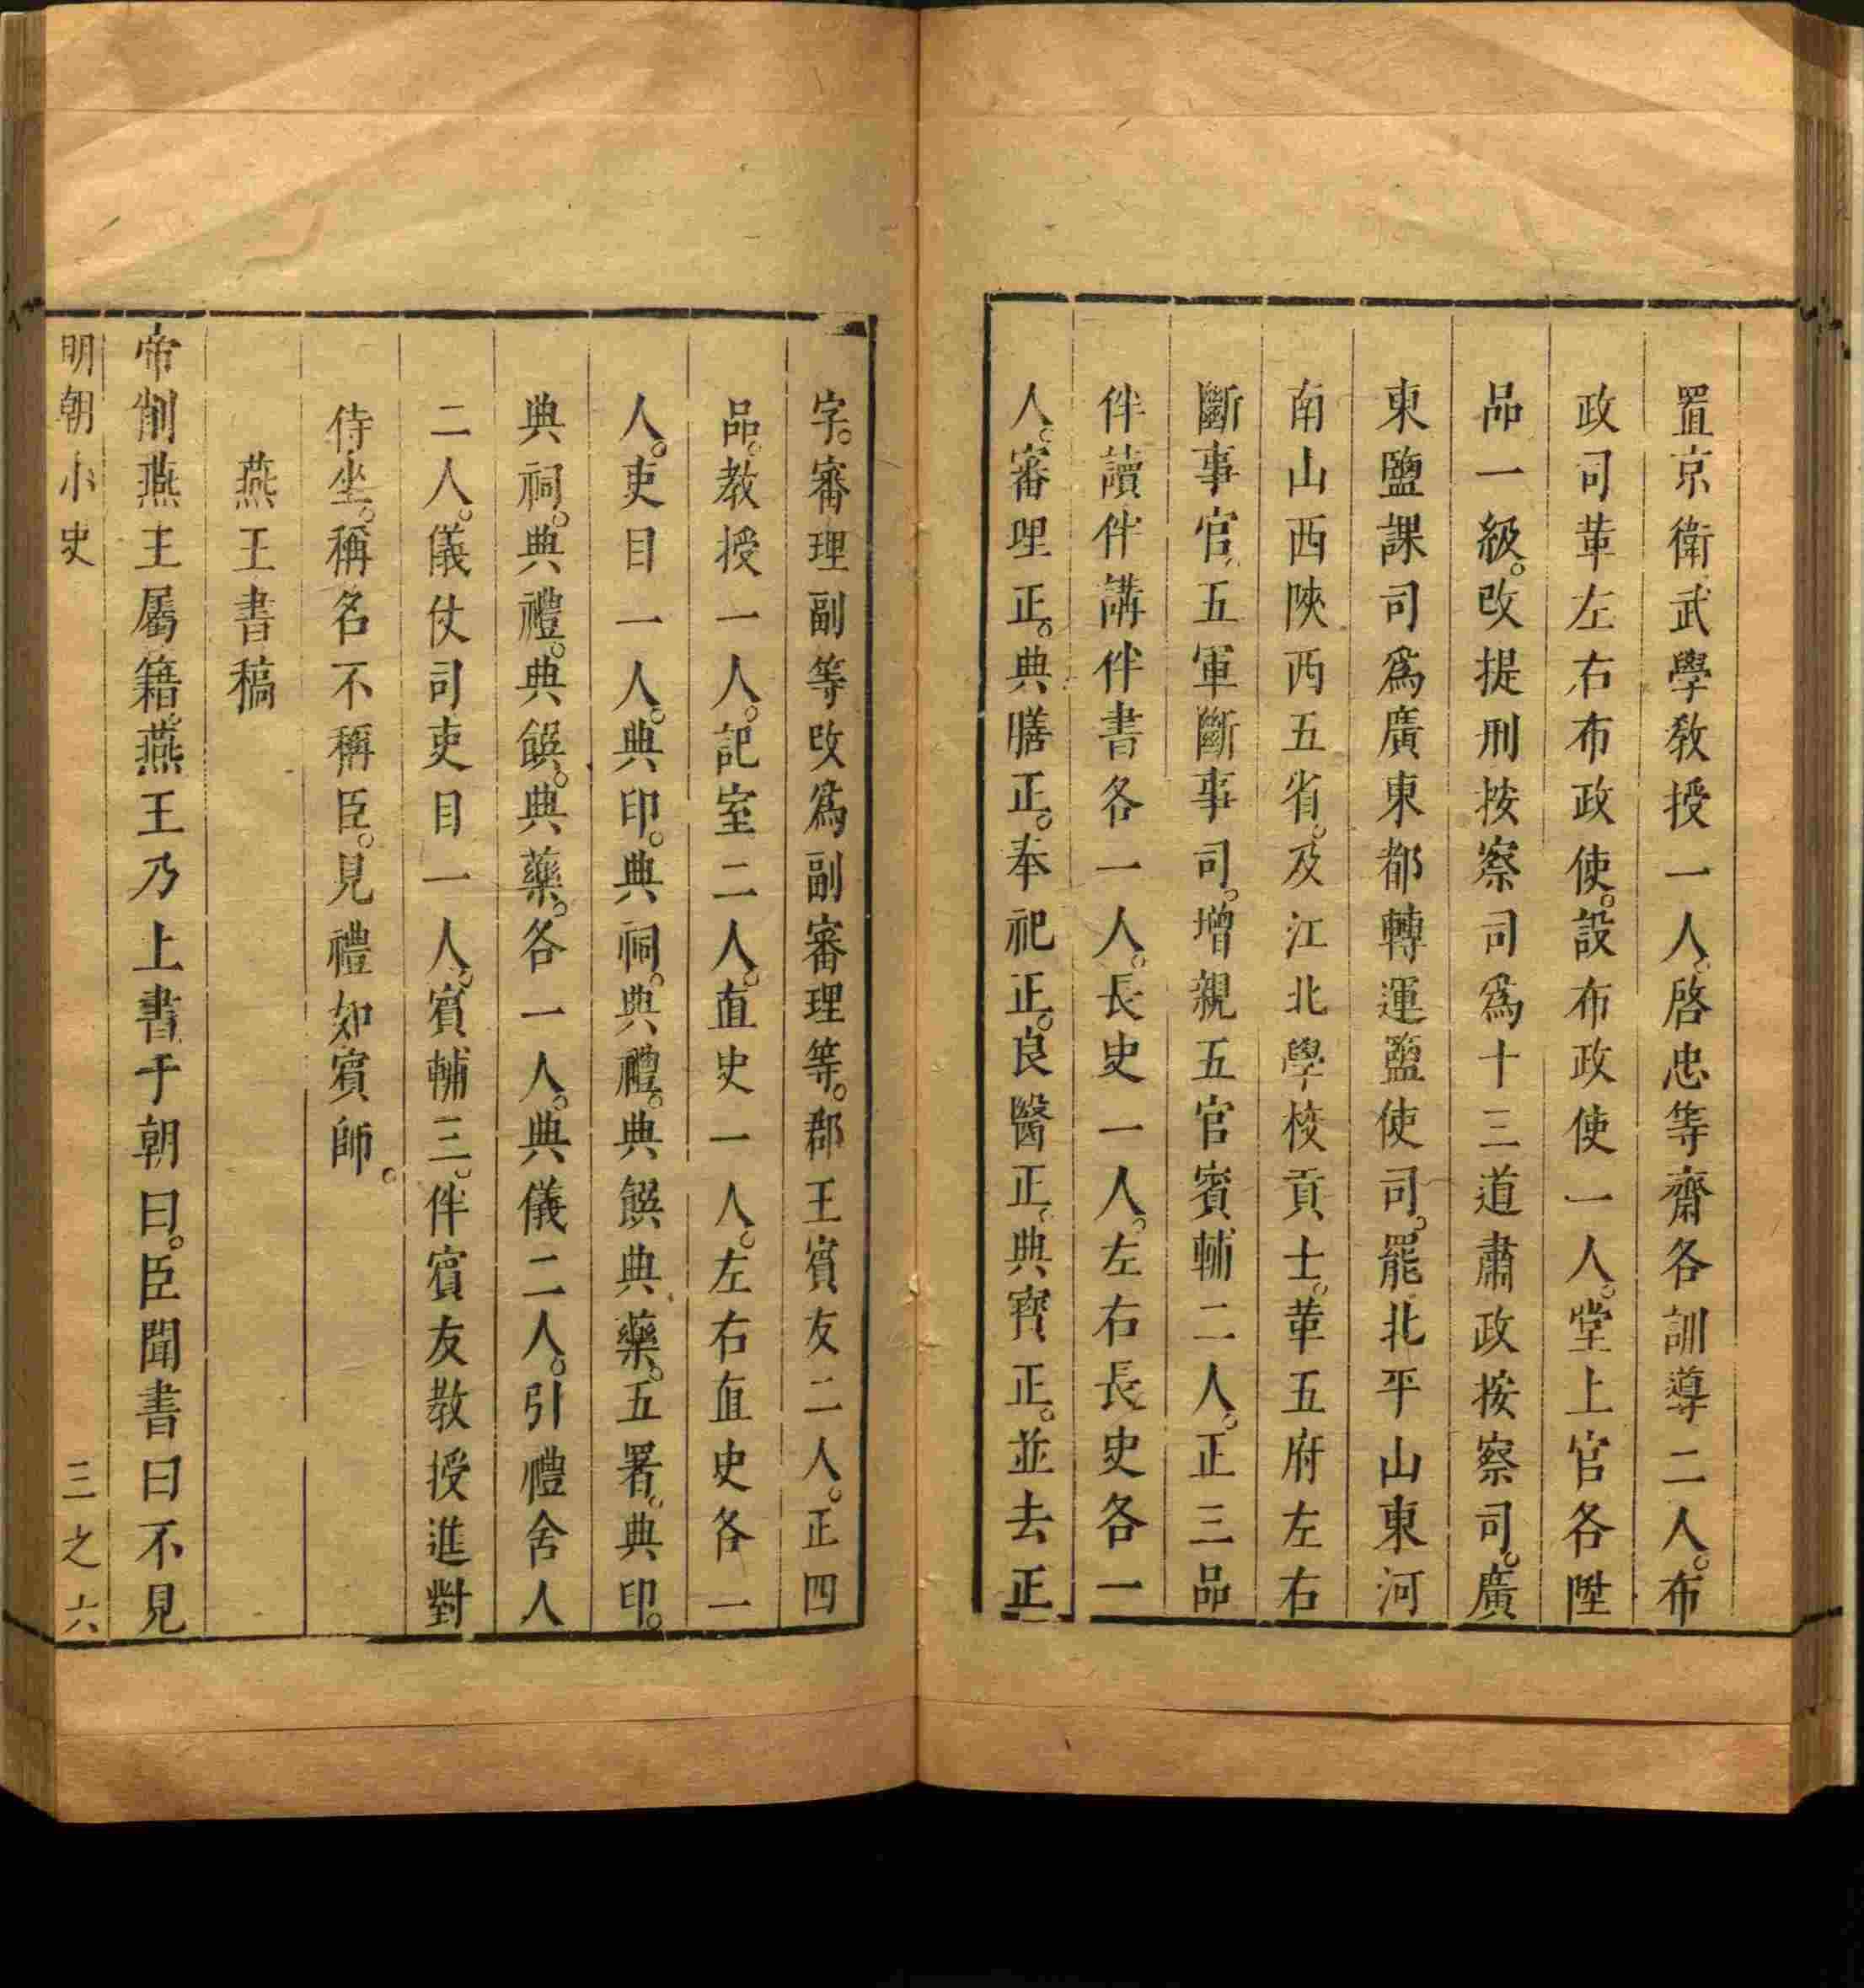 置京衛武學敎授一人。啓忠等齋各訓導二人。布
政司革左右布政使。設布政使一人。堂上官各陞
品一級。改提刑按察司爲十三道肅政按察司。廣
東鹽課司爲廣東都轉運鹽使司。罷北平山東河
南山西陝西五省。及江北學校貢士。革五府左右
斷事官、五軍斷事司。增親五官賓輔二人。正三品
伴讀伴講伴書各一人。長史一人。左右長史各一
人。審理正。典膳正。奉祀正。良醫正。典寶正。並去正
字。審理副等改爲副審理等。郡王賓友二人。正四
品。教授一人。記室二人。直史一人。左右直史各一
人。吏目一人。典印。典祠。典禮。典饌典藥。五署。典印。
典祠。典禮。典饌。典藥。各一人。典儀二人。引禮舍人
二人。儀仗司吏目一人。賓輔三。伴賓友教授進對
侍坐。稱名不稱臣。見禮如賓師。
燕王書稿
帝削燕王屬籍燕王乃上書于朝曰。臣聞書曰不見
明朝小史 三之六